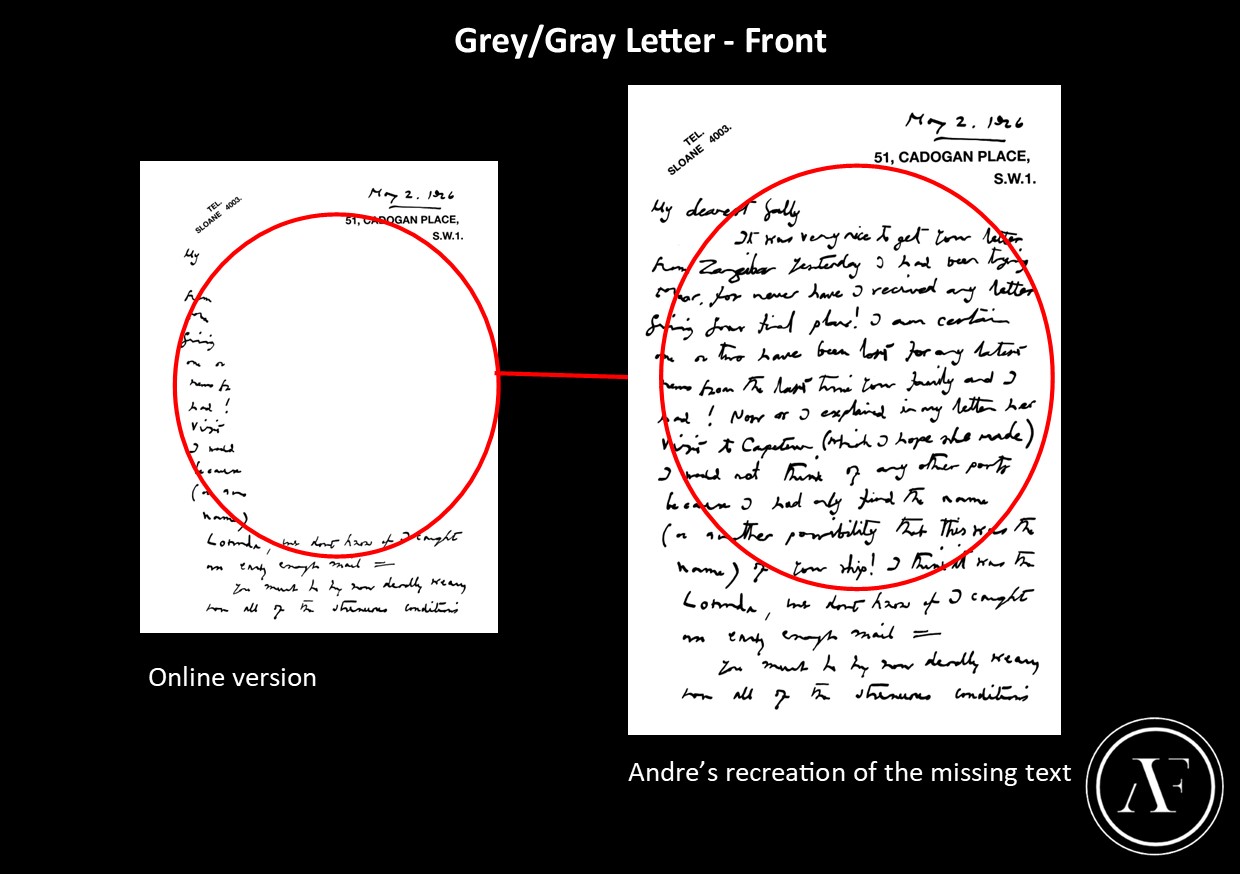 Grey/Gray Letter - Front
TEL.
SLOANE 4003.
May 2. 1926
51, CADOGAN PLACE,
S.W.1.
My
From
giving
one or
news fr
had !
Visit
I would
because
(or
name)
we dont know if I caught
an early enough mail =
You must be by now deadly weary
all of the strenuous conditions
Online version
TEL.
SLOANE 4003.
May 2. 1926
51, CADOGAN PLACE,
S.W.1.
My dearest Sally
It was very nice to get your letter
From Zanzibar Yesterday I had been trying
for never have I recieved any letter
giving your final plans! I am certain
one or two have been lost for any latest
news from the last time your family and I
had ! Now as I explained in my letter her
Visit to Capetown (which I hope she made)
I would not think of any other ports
because I had only find the name
(or another possibility that this was the
name) of your ship! I think it was the
we dont know if I caught
an early enough mail =
You must be by now deadly weary
all of the strenuous conditions
Andre's recreation of the missing text
AF